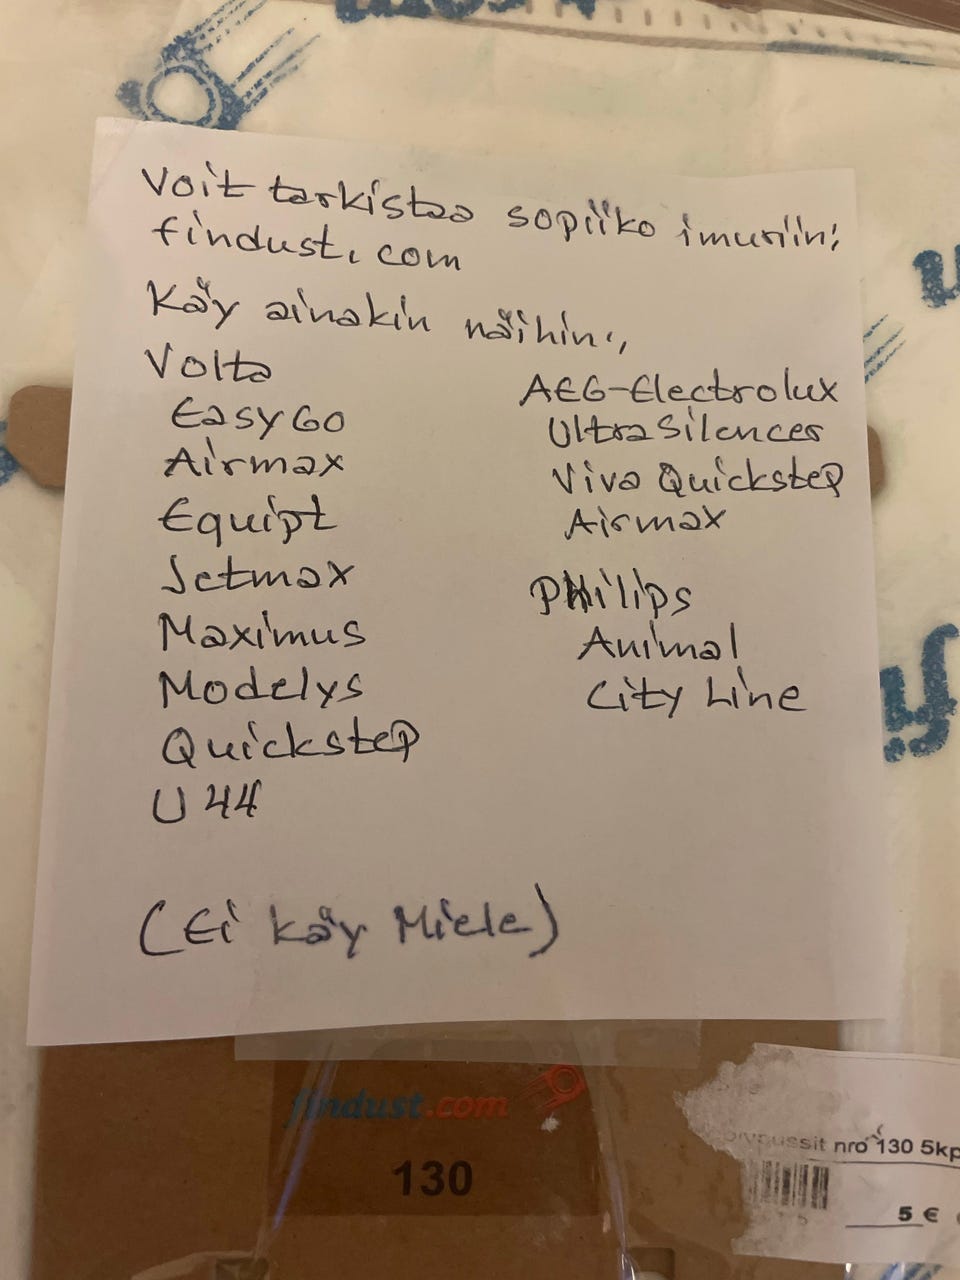 Voit tarkistaa sopiiko imuriin:
findust.com
Käy ainakin näihin:
Volta
EasyGo
Airmax
Equipt
Jetmax
Maximus
Modelys
Quickstep
U 44
AEG-Electrolux
UltraSilencer
Viva Quickstep
Airmax
Philips
Animal
City Line
(Ei käy Miele)
findust.com
130
nro 130 5kp
5 €